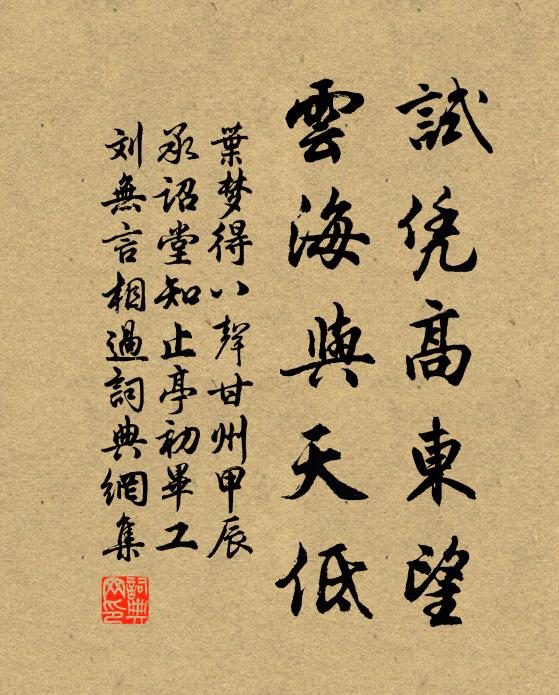 試凭高東望
雲海與天低
葉梦得八聲甘州甲辰
承詔堂知止亭初畢工
刘無言相過詞典網集
詞典
网印